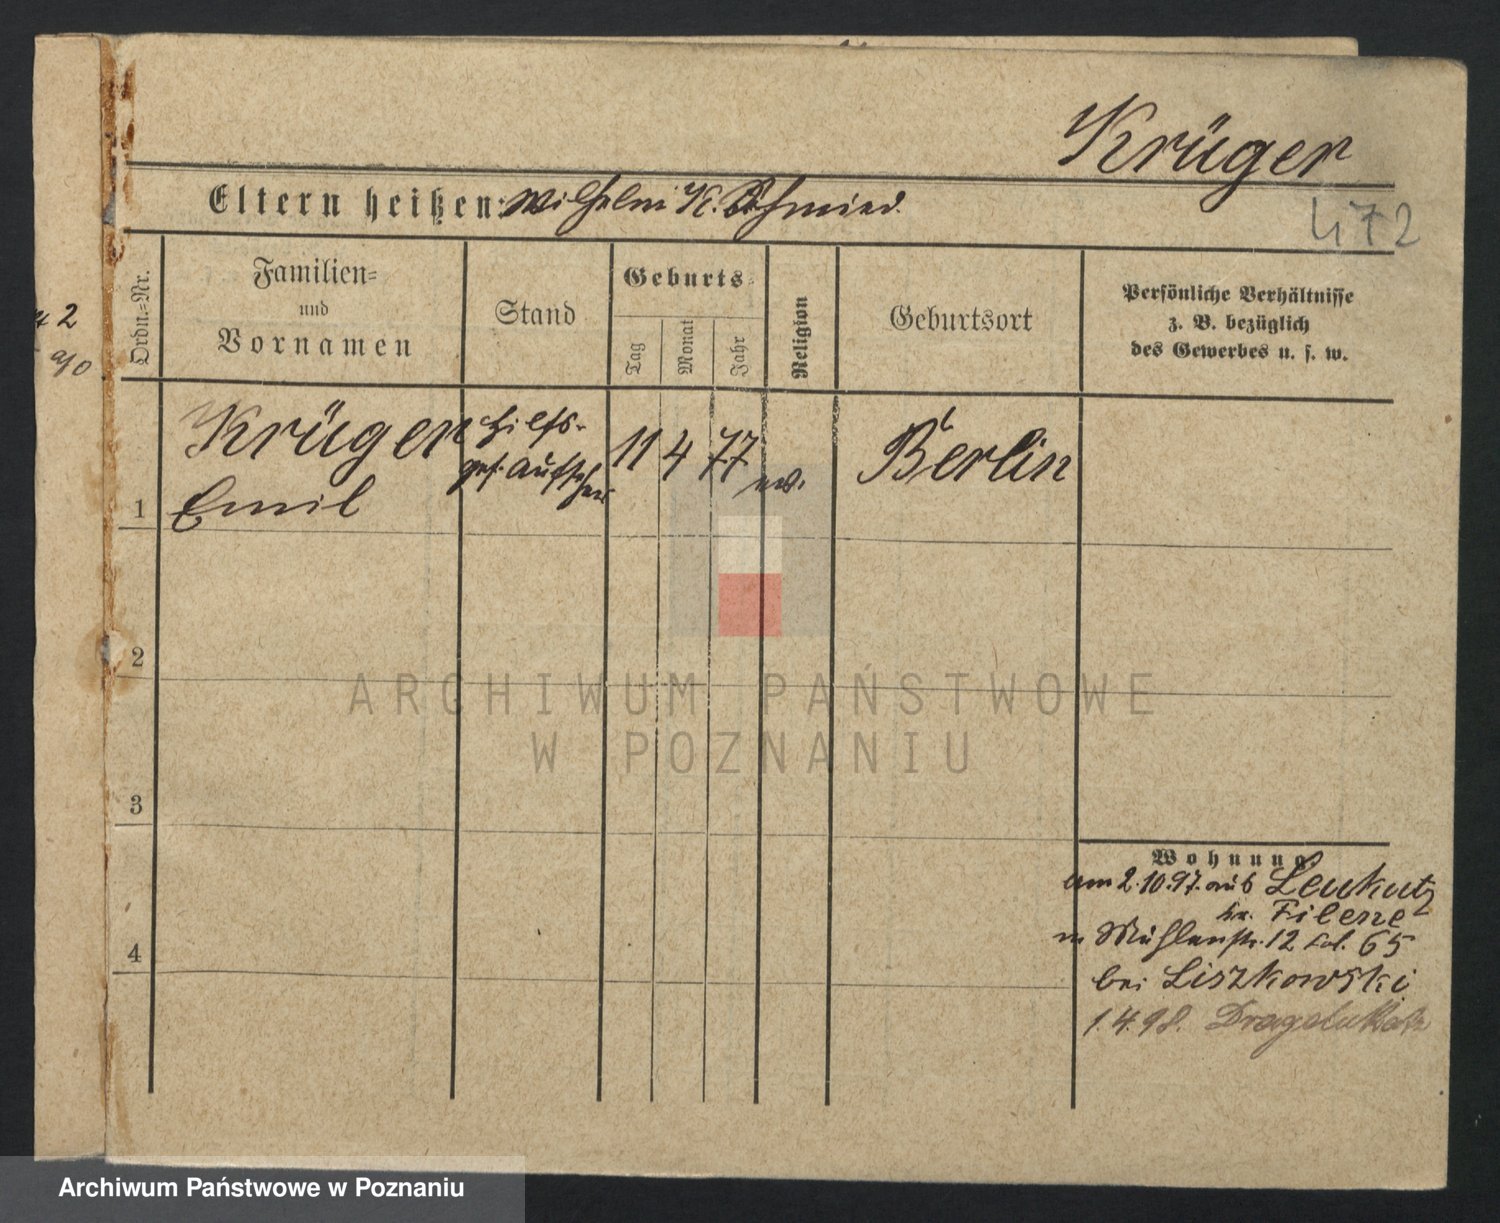 Krüger
Eltern heißen: Wilhelm K. Schmied.
472
Ordn.-Nr.
Familien-
und
Vornamen
Stand
Geburts-
Tag
Monat
Jahr
Religion
Geburtsort
Persönliche Verhältnisse
z. B. bezüglich
des Gewerbes u. s. w.
2
90
Krüger
Emil
Hilfs-
gef. Aufseher
11 4 77
ev.
Berlin
1
2
3
4
ARCHIWUM PAŃSTWOWE
W POZNANIU
Wohnung.
am 2.10.97. aus
Kr. Filene
Mühlenstr. 12 65
bei Liszkowski
1.4.98.
Archiwum Państwowe w Poznaniu